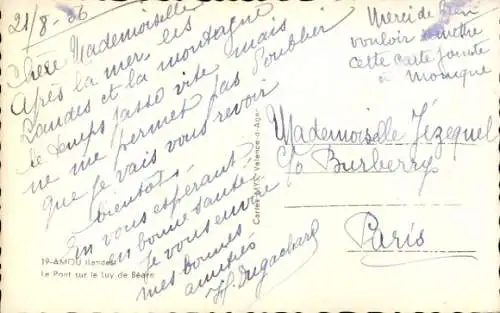 21/8-66
Chère Mademoiselle
Après la mer, les
Landes et la montagne
le temps passe vite mais
ne me permet pas d'oublier
que je vais vous revoir
bientôt.
En vous espérant
en bonne santé
je vous envoie
mes bonnes
amitiés
19-AMOU (Landes)
Le Pont sur le Luy de Béarn
Cartes MYR Valence-d'Agen
Merci de bien
vouloir remettre
cette carte jointe
à Monique
Mademoiselle Jézequel
c/o Burberrys
Paris